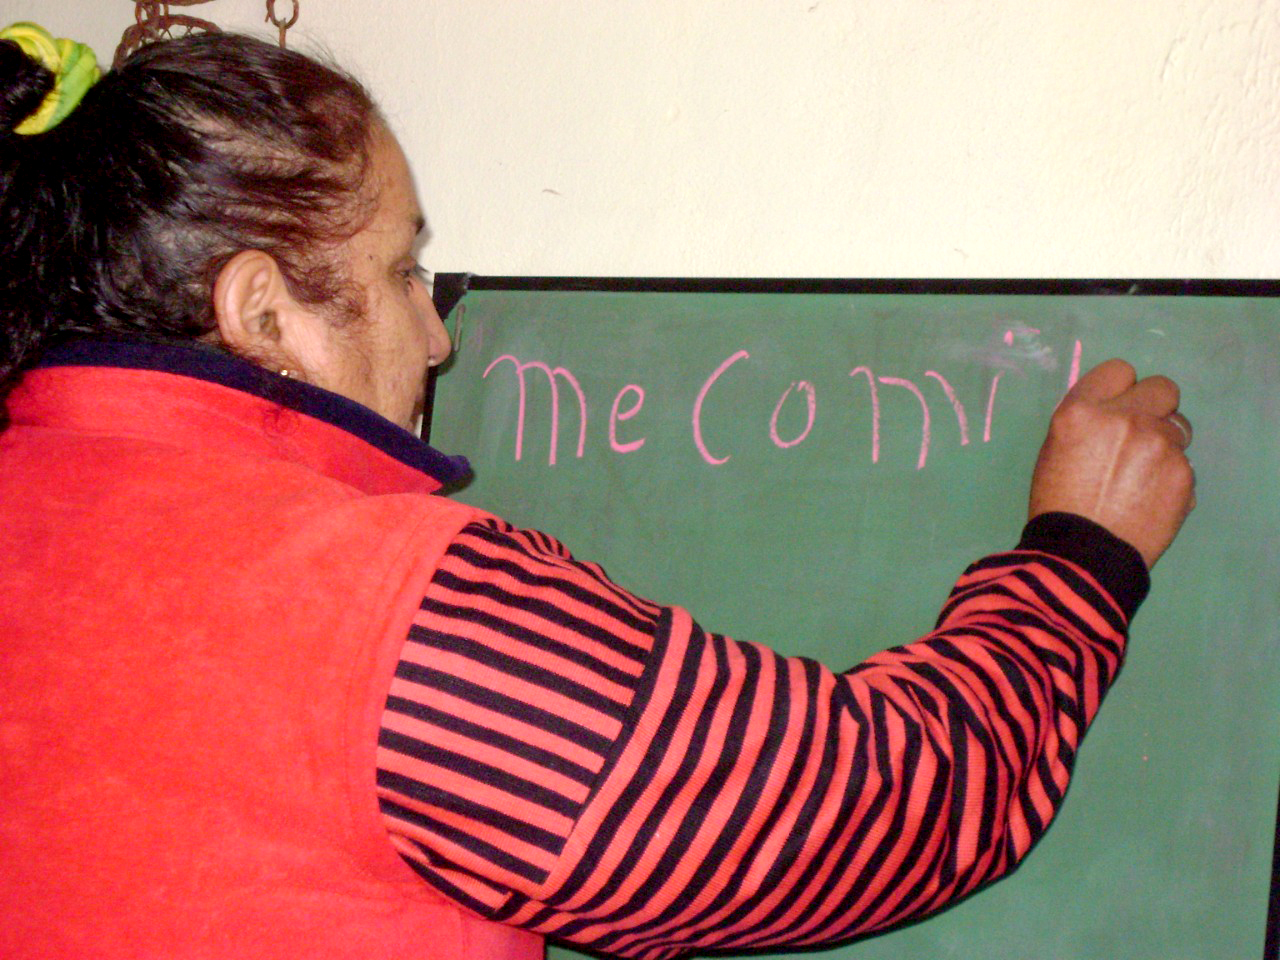 me convi